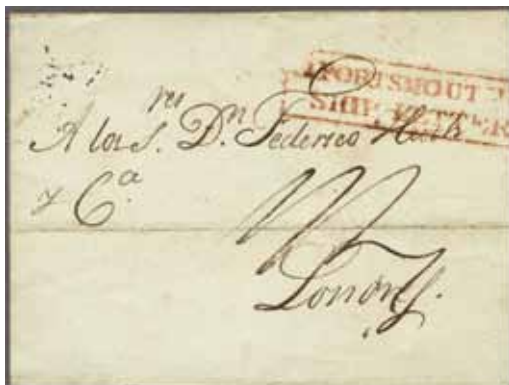 PORTSMOUTH
SHIP LETTER
A los S.res D.n Federico Huth
y C.a
Londres.